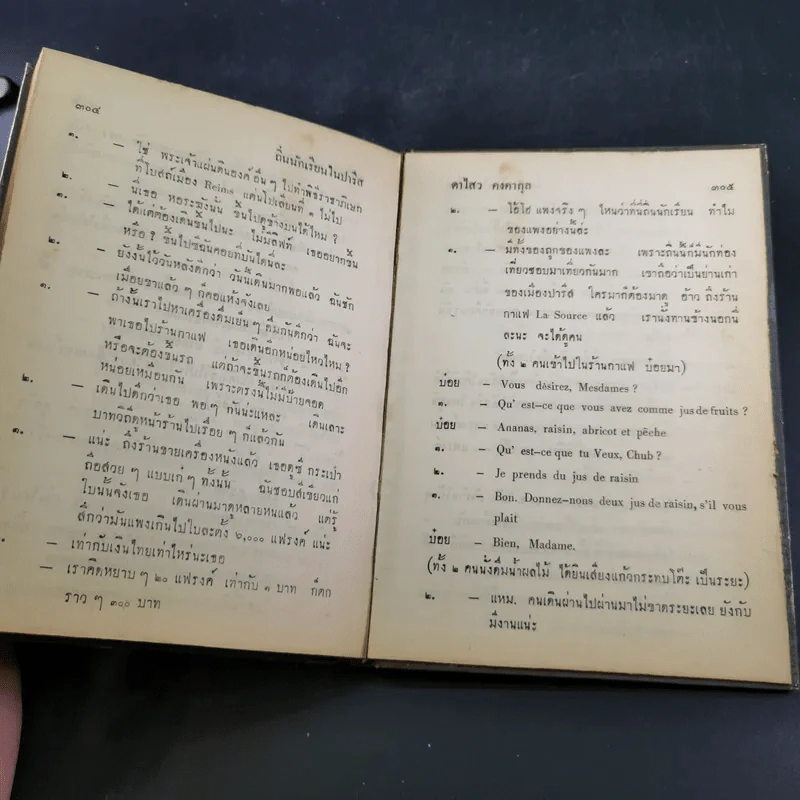 ๓๐๔
ถิ่นนักเรียนในปารีส
๑. — ใช่ พระเจ้าแผ่นดินองค์อื่น ๆ ไปทำพิธีราชาภิเษก
ที่โบสถ์เมือง Reims แต่นโปเลียนที่ ๑ ไม่ไป
๒. — นี่เธอ หอระฆังนั้น ขึ้นไปดูข้างบนได้ไหม ?
๑. — ได้แต่ต้องเดินขึ้นไปนะ ไม่มีลิฟท์ เธออยากขึ้น
หรือ ? ขึ้นไปซีฉันคอยที่บนโต๊ะนี่ละ
๒. — ยังงั้นไว้วันหลังดีกว่า วันนี้เดินมากพอแล้ว ฉันชัก
เมื่อยขาแล้ว ๆ ก็คอแห้งจังเลย
๑. — ถ้างั้นเราไปหาเครื่องดื่มเย็น ๆ ดื่มกันดีกว่า ฉันจะ
พาเธอไปร้านกาแฟ เธอเดินอีกหน่อยไหวไหม ?
หรือจะต้องขึ้นรถ แต่ถ้าจะขึ้นรถก็ต้องเดินไปอีก
หน่อยเหมือนกัน เพราะตรงนี้ไม่มีป้ายจอด
๒. — เดินไปดีกว่าเธอ พอ ๆ กันน่ะแหละ เดินเลาะ
บาทวิถีดูหน้าร้านไปเรื่อย ๆ ก็แล้วกัน
๑. — แน่ะ ถึงร้านขายเครื่องหนังแล้ว เธอดูซี กระเป๋า
ถือสวย ๆ แบบเก๋ ๆ ทั้งนั้น ฉันชอบสีเขียวแก่
ใบนั้นจังเธอ เดินผ่านมาดูหลายหนแล้ว แต่รู้
สึกว่ามันแพงเกินไปใบละตั้ง ๖,๐๐๐ แฟรงค์ แน่ะ
— เท่ากับเงินไทยเท่าไหร่นะเธอ
— เราคิดหยาบ ๆ ๒๐ แฟรงค์ เท่ากับ ๑ บาท ก็ตก
ราว ๆ ๓๐๐ บาท
ดาไสว คงคากุล ๓๐๕
๒. — โอ้โฮ แพงจริง ๆ ไหนว่าที่นี่ถิ่นนักเรียน ทำไม
ของแพงอย่างนี้ล่ะ
๑. — มีทั้งของถูกของแพงละ เพราะถิ่นนี้ก็มีนักท่อง
เที่ยวชอบมาเที่ยวกันมาก เขาถือว่าเป็นย่านเก่า
ของเมืองปารีส ใครมาก็ต้องมาดู อ้าว ถึงร้าน
กาแฟ La Source แล้ว เรานั่งทานข้างนอกนี่
ละนะ จะได้ดูคน
(ทั้ง ๒ คนเข้าไปในร้านกาแฟ บ๋อยมา)
บ๋อย — Vous désirez, Mesdames ?
๑. — Qu' est-ce que vous avez comme jus de fruits ?
บ๋อย — Ananas, raisin, abricot et pêche
๑. — Qu' est-ce que tu Veux, Chub ?
๒. — Je prends du jus de raisin
๑. — Bon. Donnez-nons deux jus de raisin, s'il vous
plait
บ๋อย — Bien, Madame.
(ทั้ง ๒ คนนั่งดื่มน้ำผลไม้ ได้ยินเสียงแก้วกระทบโต๊ะ เป็นระยะ)
๒. — แหม. คนเดินผ่านไปผ่านมาไม่ขาดระยะเลย ยังกับ
มีงานแน่ะ